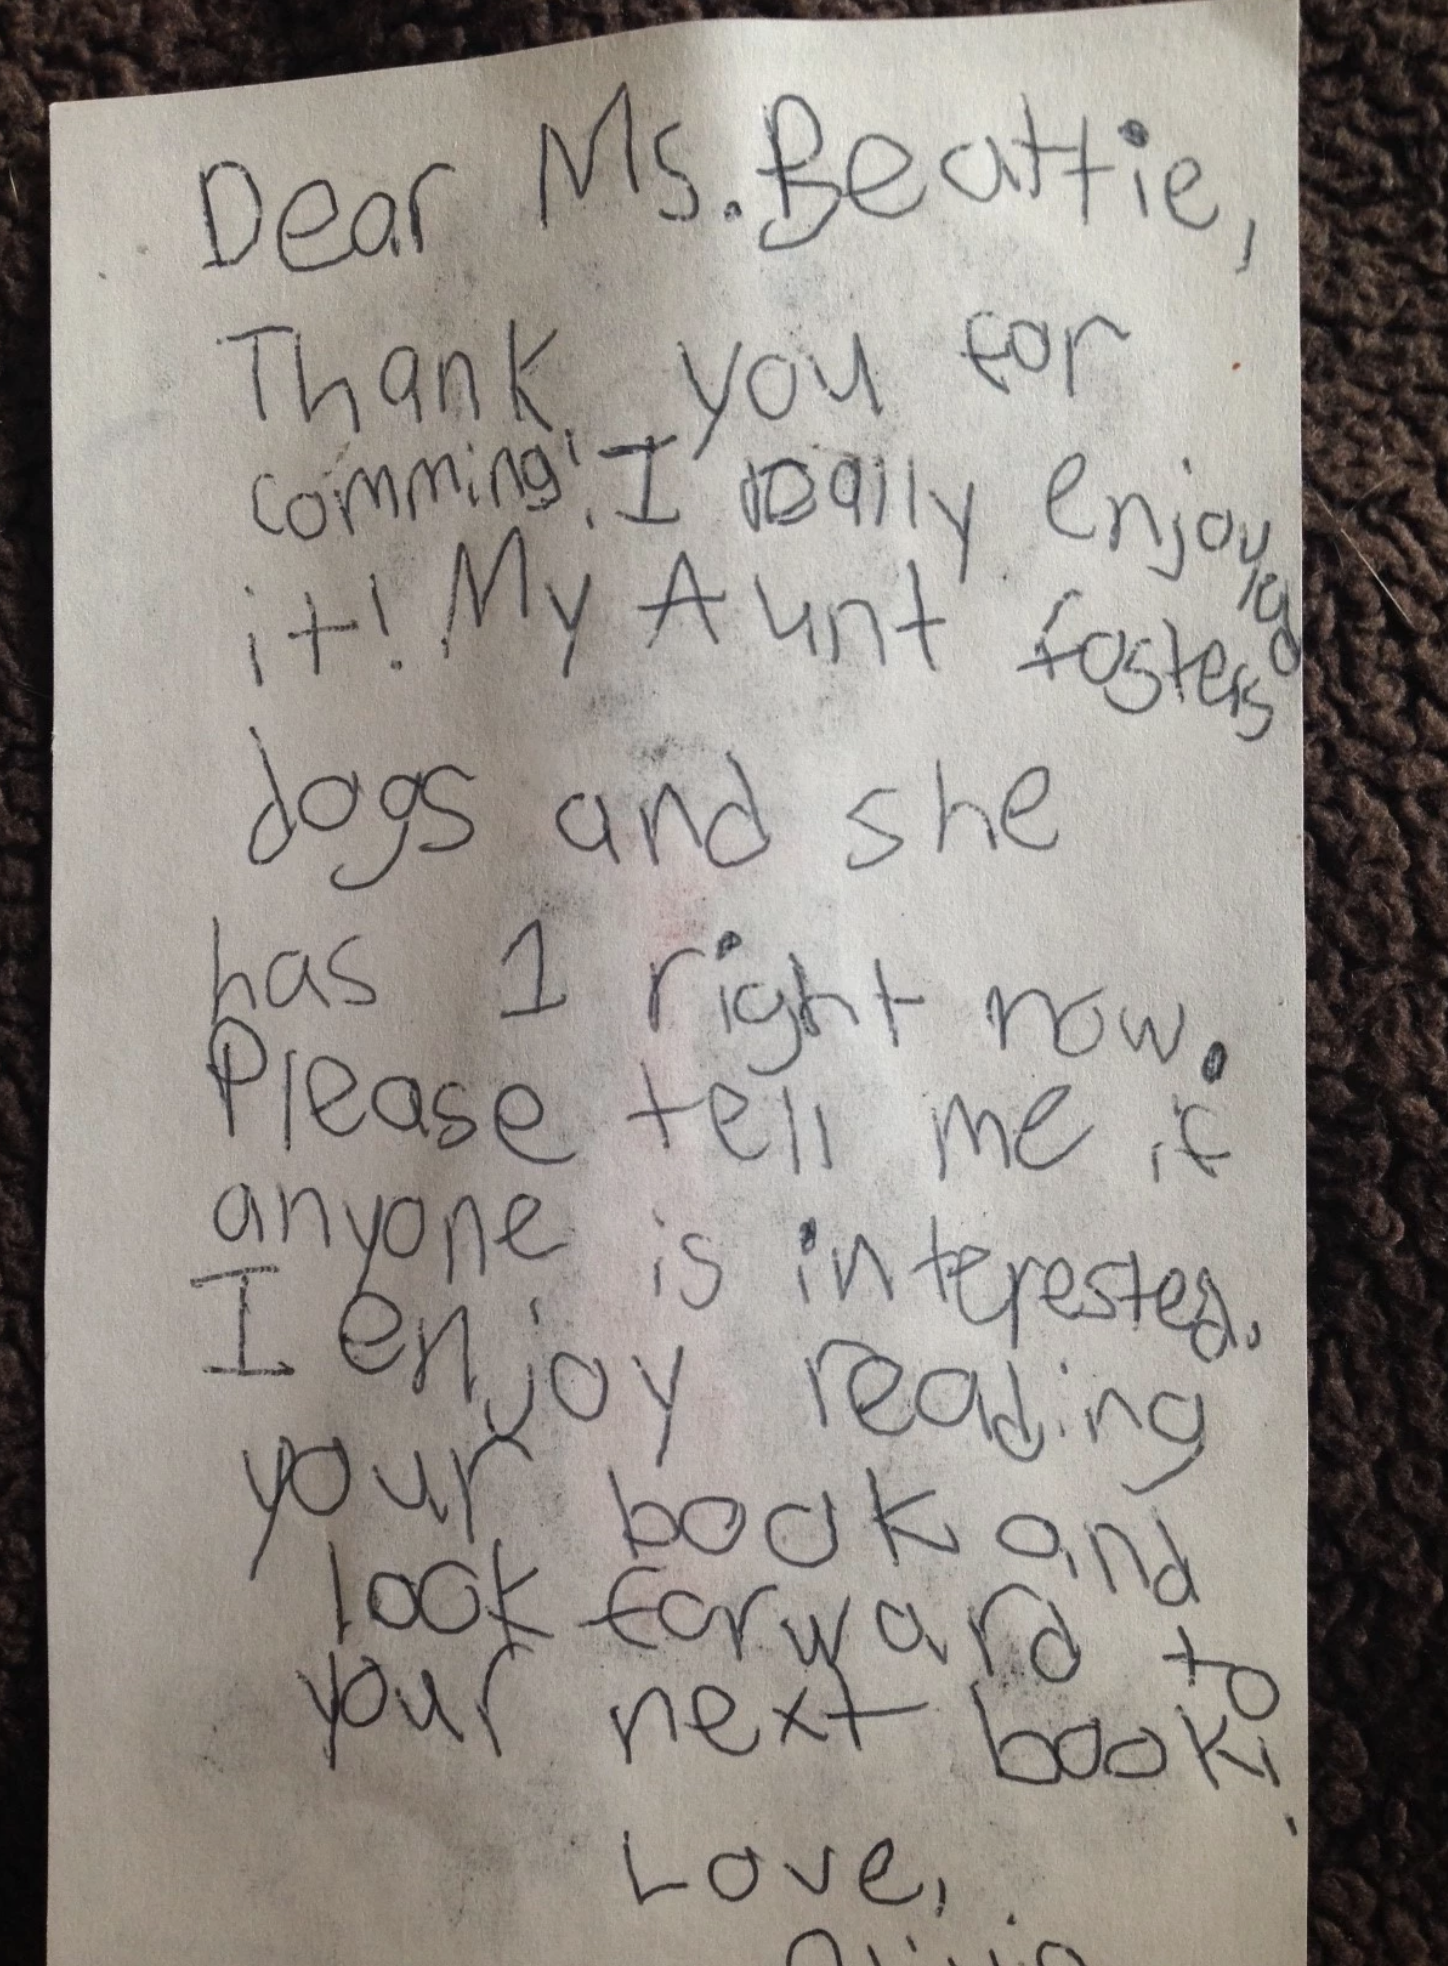 Dear Ms. Beattie,
Thank you for
comming! I really enjoyed
it! My Aunt fosters
dogs and she
has 1 right now.
Please tell me if
anyone is interested.
I enjoy reading
your book and
look forward to
your next book!
Love,